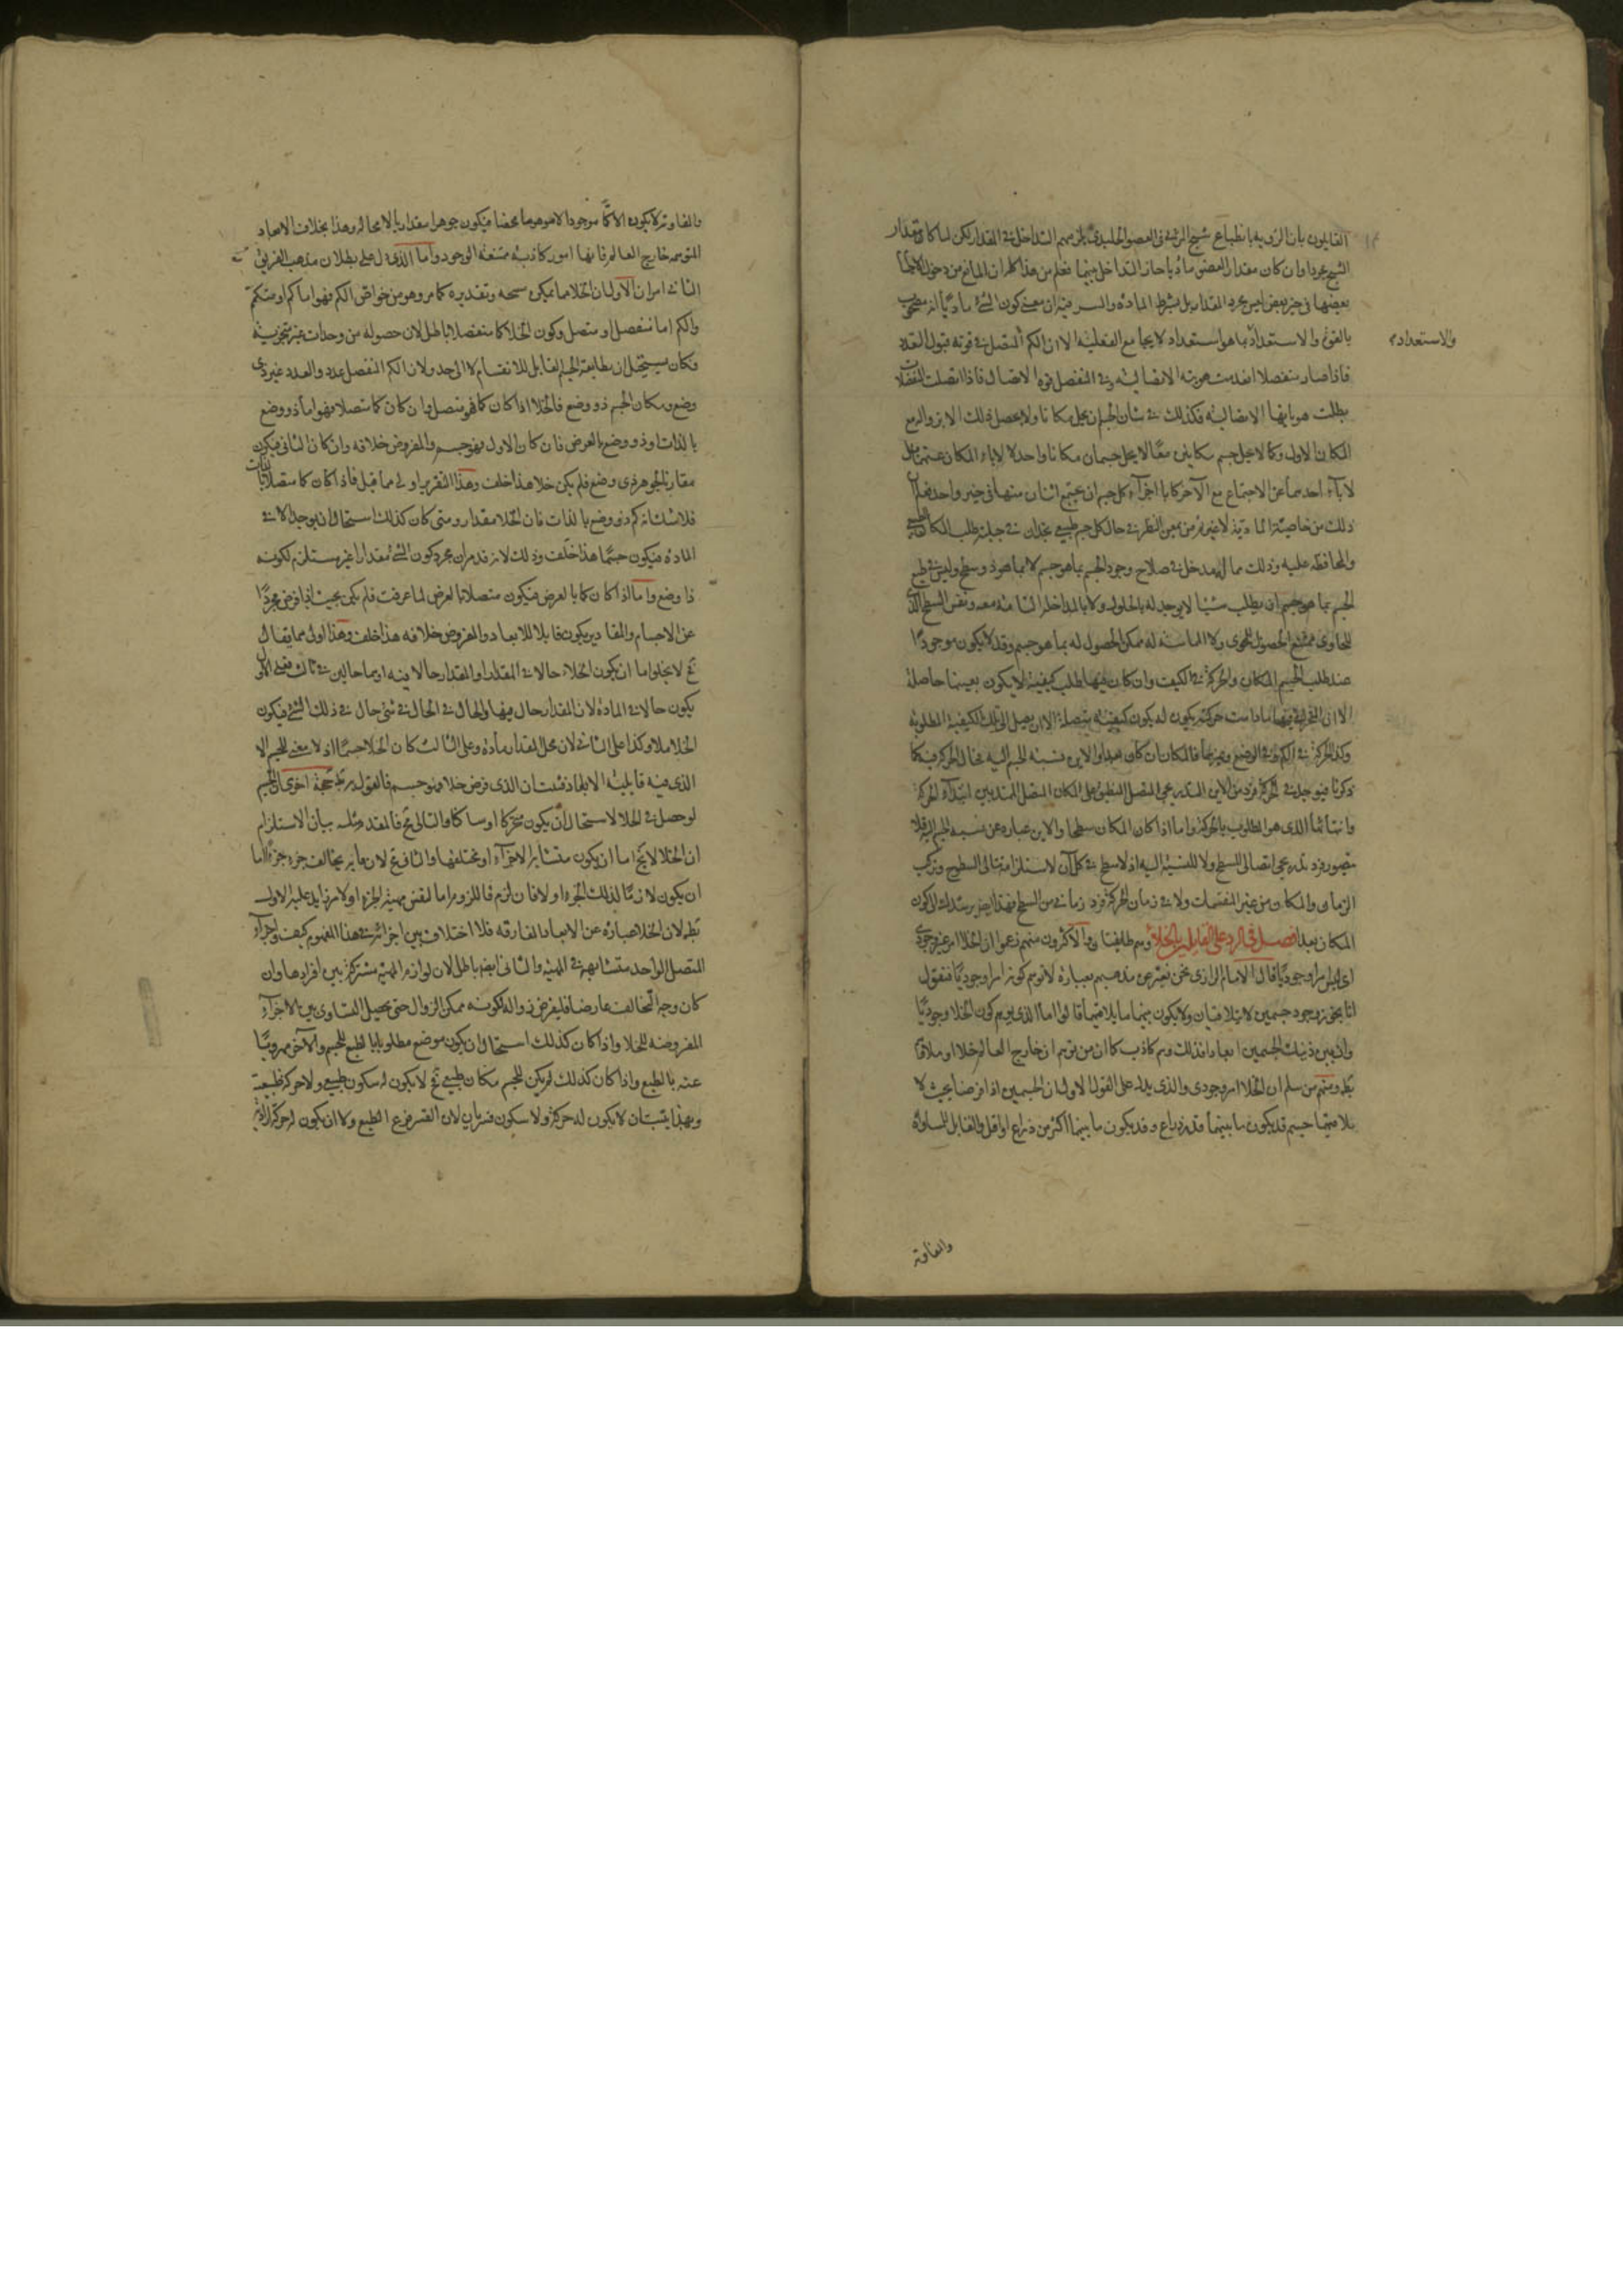 القايلون بان الرويه بانطباع شبح المرئى فى العضو الجليدى يلزمهم التداخل فى المقدار لكن لما كان مقدار
الشبح مجردا وان كان مقدار العضو ماديا جاز التداخل بينهما فعلم من هذا كله ان المانع من دخول الاجسام
بعضها فى حيز بعض ليس مجرد المقدار بل بشرط المادة والسر فيه ان معنى كون الشئ ماديا انه مصحوب
بالقوة والاستعداد بما هو استعداد لا يجامع الفعلية الا ان الكم المتصل فى قوته قبول التعدد
والاستعداد
فاذا صار منفصلا انعدمت هويته الاتصالية وفى المنفصل قوة الاتصال فاذا اتصلت المنفصلات
بطلت هوياتها الانفصالية فكذلك فى شان الجسم ان يحل مكانا ولا يحصل ذلك الا بزواله مع
المكان الاول وكما لا يحل جسم مكانين معا لا يحل جسمان مكانا واحدا لا لاباء المكان عنهما بل
لاباء احدهما عن الاجتماع مع الآخر كاباء اجزاء كل جسم ان يجتمع اثنان منها فى حيز واحد فعلم ان
ذلك من خاصية المادية لا غير ثم من يمعن النظر فى حال كل جسم طبيعى يجد ان فى جبلته طلب المكان الطبيعى
والمحافظة عليه وذلك مما له مدخل فى صلاح وجود الجسم بما هو جسم لا بما هو ذو سطح وليس فى طبع
الجسم بما هو جسم ان يطلب شيئا لا يوجد له بالحلول ولا بالمداخلة التامة معه ونفس السطح الذى
للحاوى ممتنع الحصول للمحوى ولا المماسة له ممكن الحصول له بما هو جسم وقد لا يكون موجودا
عند طلب الجسم المكان والحركة فى الكيف وان كان فيها طلب كيفية لا يكون بعينها حاصلة
الا ان المتحرك فيها ما دامت حركته يكون له يكون كيفية متصلة الى ان يصل الى تلك الكيفية المطلوبة
وكذا الحركة فى الكم وفى الوضع وغيرهما فالمكان ان كان بعدا والاين نسبة الجسم اليه فحال الحركة فيه كما
ذكرنا فيوجد فى الحركة فرد من الاين التدريجى المتصل المنطبق على المكان المتصل الممتد بين ابتداء الحركة
وانتهائها الذى هو المطلوب بالحركة واما اذا كان المكان سطحا والاين عبارة عن نسبة الجسم اليه فلا
يتصور فرد تدريجى اتصالى للسطح ولا للنسبة اليه اذ لا سطح فى كل آن لاستلزامه تتالى السطوح وتركب
الزمان والمكان من غير المنقسمات ولا فى زمان الحركة فرد زمانى من السطح فهذا ايضا يرشدك الى كون
المكان بعدا فصل فى الرد على القايلين بالخلاء وهم طايفتان والاكثرون منهم زعموا ان الخلا امر غير وجودى
اى ليس امرا وجوديا قال الامام الرازى نحن نعبر عن مذهبهم بعبارة لا توهم كونه امرا وجوديا فنقول
انا نجوز وجود جسمين لا يتلاقيان ولا يكون بينهما ما يلاقيهما قالوا اما الذى يوهم كون الخلا وجوديا
وان بين ذينك الجسمين ابعادا فذلك وهم كاذب كما ان من توهم ان خارج العالم خلا او ملاء
بط ومنهم من سلم ان الخلا امر وجودى والذى يدل على القول الاول ان الجسمين اذا فرضنا بحيث لا
يلاقيهما جسم قد يكون ما بينهما قدر ذراع وقد يكون ما بينهما اكثر من ذراع او اقل والقابل للمساواة
والمفاوتة
والمفاوتة لا يكون الا كما موجودا لا موهوما محضا فيكون جوهرا مقداريا لا محالة وهذا بخلاف الابعاد
المتوهمة خارج العالم فانها امور كاذبة ممتنعة الوجود واما الذى يدل على بطلان مذهب الفريق
الثانى امران الاول ان الخلا مما يمكن مسحه وتقديره كما مر وهو من خواص الكم فهو اما كم او متكمم
والكم اما منفصل او متصل وكون الخلا كما منفصلا باطل لان حصوله من وحدات غير متجزية
فكان يستحيل ان يطابقه الجسم القابل للانقسام لا الى حد ولان الكم المنفصل عدد والعدد غير ذى
وضع ومكان الجسم ذو وضع فالخلا اذا كان كما فهو متصل وان كان كما متصلا فهو اما ذو وضع
بالذات او ذو وضع بالعرض فان كان الاول فهو جسم والمفروض خلافه وان كان الثانى فيكون
مقارنا لجوهر ذى وضع فلم يكن خلا هذا خلف وهذا التقرير اولى مما قيل فاذا كان كما متصلا بالذات
فلا شك انه كم ذو وضع بالذات فان الخلا مقدار ومتى كان كذلك استحال ان يوجد الا فى
المادة فيكون جسما هذا خلف وذلك لانه قد مر ان مجرد كون الشئ مقدارا غير مستلزم لكونه
ذا وضع واما اذا كان كما بالعرض فيكون متصلا بالعرض لما عرفت فلم يكن بحيث اذا فرض مجردا
عن الاجسام والمقادير يكون قابلا للابعاد والمفروض خلافه هذا خلف وهذا اولى مما يقال
ثم لا يخلو اما ان يكون الخلاء حالا فى المقدار او المقدار حالا فيه او هما حالين فى ثالث فعلى الاول
يكون حالا فى المادة لان المقدار حال فيها والحال فى الحال فى شئ حال فى ذلك الشئ فيكون
الخلا ملا وكذا على الثانى لان محل المقدار مادة وعلى الثالث كان الخلا جسما اذ لا معنى للجسم الا
الذى فيه قابلية الابعاد فثبت ان الذى فرض خلا فهو جسم فالقول به بط حجة اخرى الجسم
لو حصل فى الخلا لاستحال ان يكون متحركا او ساكنا والتالى مح فالمقدم مثله بيان الاستلزام
ان الخلا لا يخ اما ان يكون متشابه الاجزاء او مختلفها والثانى مح لان ما به يخالف جزء جزءا اما
ان يكون لازما لذلك الجزء او لا فان لزم فاللزوم اما لنفس مهية الجزء او لامر زايد عليه الاول
بط لان الخلا عبارة عن الابعاد المفارقه فلا اختلاف بين اجزائه فى هذا المفهوم كيف واجزاء
المتصل الواحد متشابهة فى المهية والثانى ايضا باطل لان لوازم المهية مشتركة بين افرادها وان
كان وجه التخالف عارضا فليفرض زواله لكونه ممكن الزوال حتى يحصل التساوى بين الاجزاء
المفروضه للخلا واذا كان كذلك استحال ان يكون موضع مطلوبا بالطبع للجسم والآخر مهروبا
عنه بالطبع واذا كان كذلك لم يكن للجسم مكان طبيعى فح لا يكون له سكون طبيعى ولا حركة طبيعية
وبهذا يثبت ان لا يكون له حركة ولا سكون قسريان لان القسر فرع الطبع ولا ان يكون له حركة ارادية